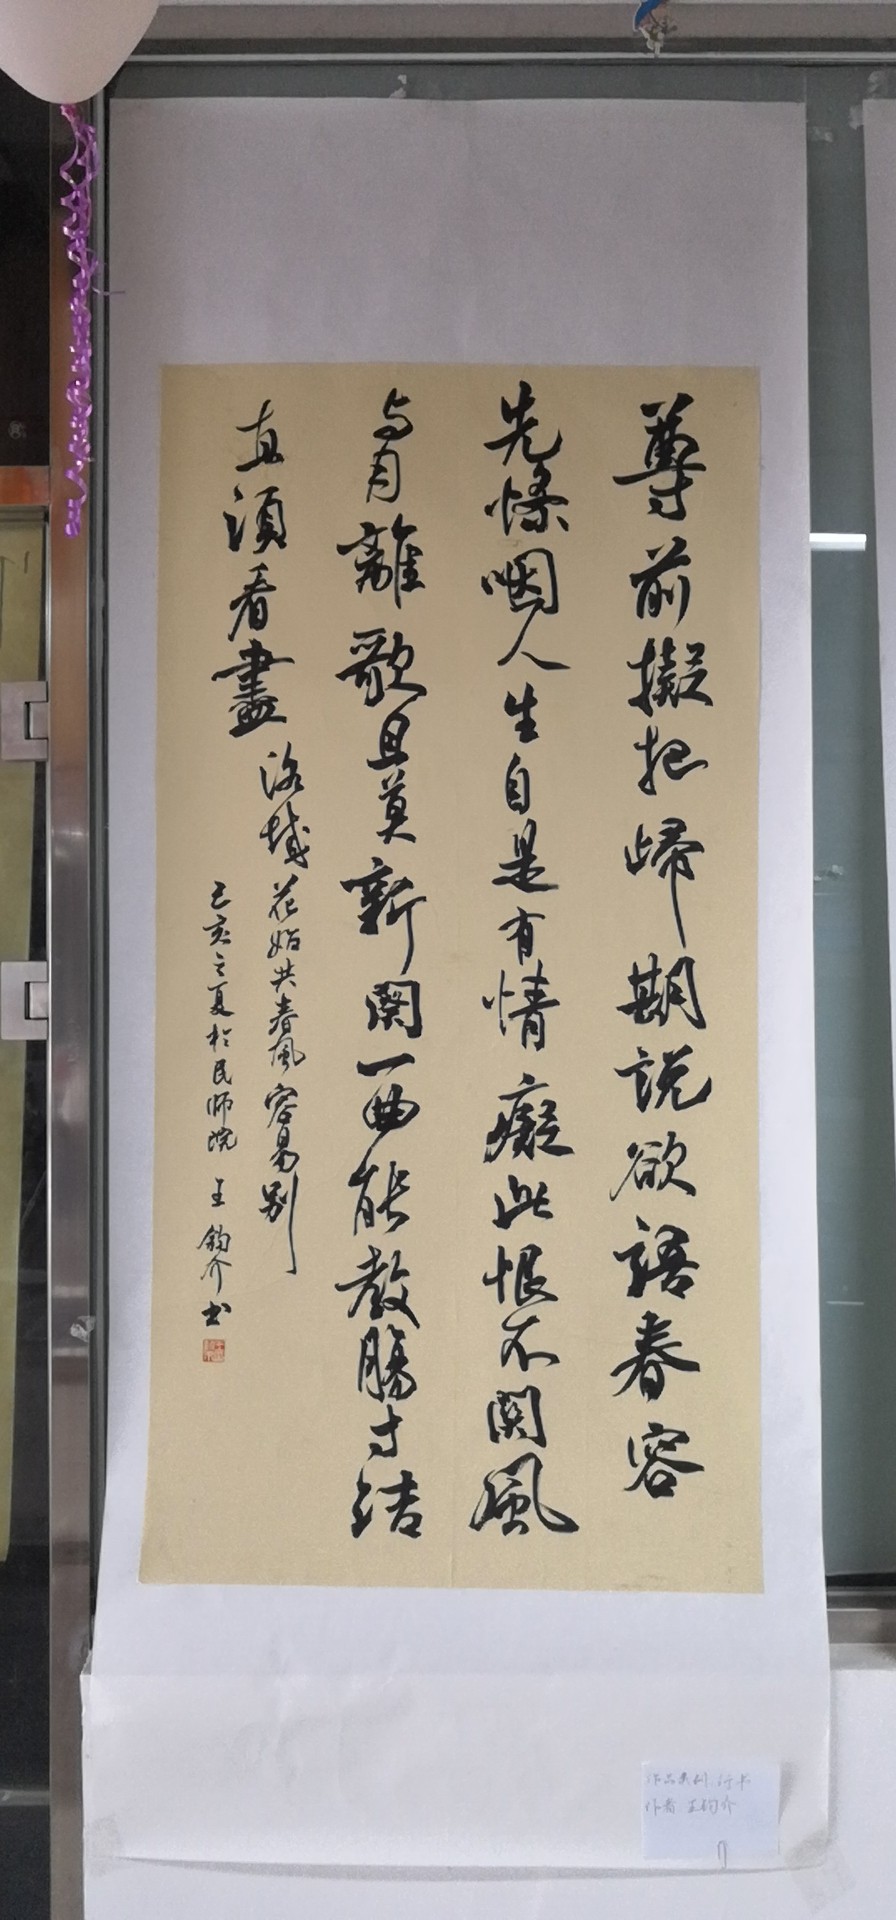 尊前擬把歸期說欲語春容
先惨咽人生自是有情癡此恨不関風
与月離歌且莫新闋一曲能教腸寸结
直須看盡洛城花始共春風容易别
己亥之夏於民师院王钧介书
作品类别 行书
作者 王钧介